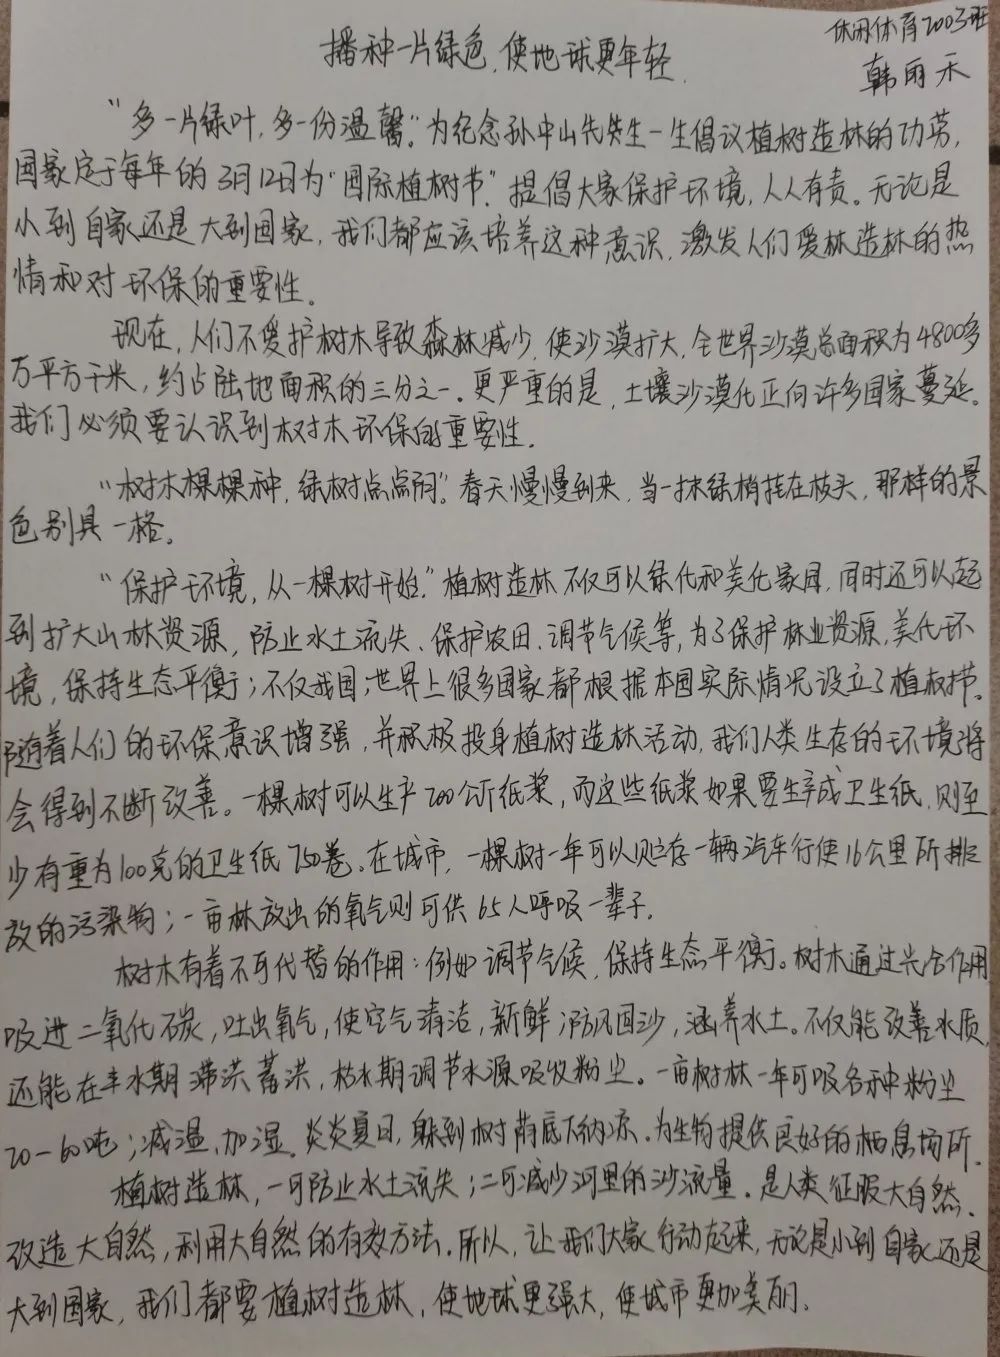 休闲体育2003班
韩雨禾
播种一片绿色,使地球更年轻
“多一片绿叶,多一份温馨”。为纪念孙中山先生一生倡议植树造林的功劳,
国家定于每年的3月12日为“国际植树节”。提倡大家保护环境,人人有责。无论是
小到自家还是大到国家,我们都应该培养这种意识,激发人们爱林造林的热
情和对环保的重要性。
现在,人们不爱护树木导致森林减少,使沙漠扩大,全世界沙漠总面积为4800多
万平方千米,约占陆地面积的三分之一。更严重的是,土壤沙漠化正向许多国家蔓延。
我们必须要认识到树木环保的重要性。
“树木棵棵种,绿树点点阴”。春天慢慢到来,当一抹绿梢挂在枝头,那样的景
色别具一格。
“保护环境,从一棵树开始”。植树造林不仅可以绿化和美化家园,同时还可以起
到扩大山林资源,防止水土流失、保护农田、调节气候等,为了保护林业资源,美化环
境,保持生态平衡;不仅我国,世界上很多国家都根据本国实际情况设立了植树节。
随着人们的环保意识增强,并积极投身植树造林活动,我们人类生存的环境将
会得到不断改善。一棵树可以生产200公斤纸浆,而这些纸浆如果要生产成卫生纸,则至
少有重为100克的卫生纸750卷。在城市,一棵树一年可以贮存一辆汽车行使16公里所排
放的污染物;一亩林放出的氧气则可供65人呼吸一辈子。
树木有着不可代替的作用:例如调节气候,保持生态平衡。树木通过光合作用
吸进二氧化碳,吐出氧气,使空气清洁,新鲜;防风固沙,涵养水土。不仅能改善水质,
还能在丰水期滞洪蓄洪,枯水期调节水源吸收粉尘。一亩树林一年可吸各种粉尘
20—60吨;减温、加湿。炎炎夏日,躲到树荫底下纳凉。为生物提供良好的栖息场所。
植树造林,一可防止水土流失;二可减少河里的沙流量。是人类征服大自然、
改造大自然,利用大自然的有效方法。所以,让我们大家行动起来,无论是小到自家还是
大到国家,我们都要植树造林,使地球更强大,使城市更加美丽。